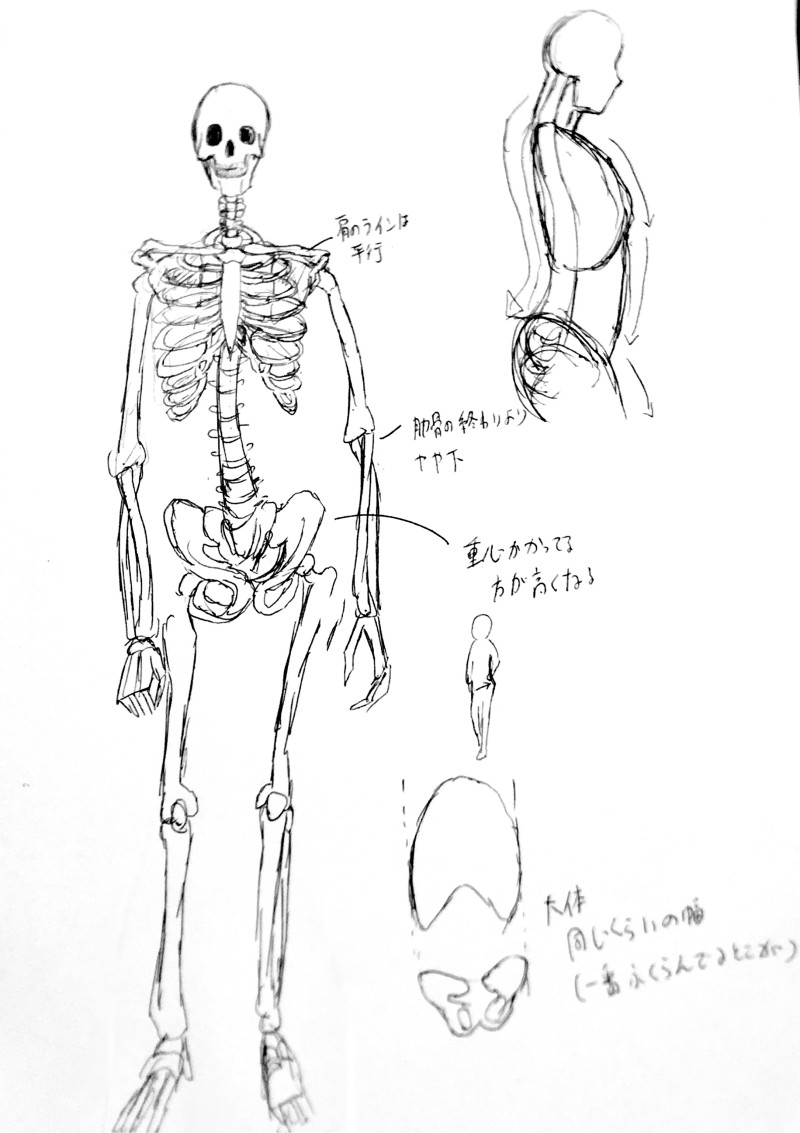 肩のラインは
平行
肋骨の終わりより
やや下
重心かかってる
方が高くなる
大体
同じくらいの幅
(一番ふくらんでるとこが)